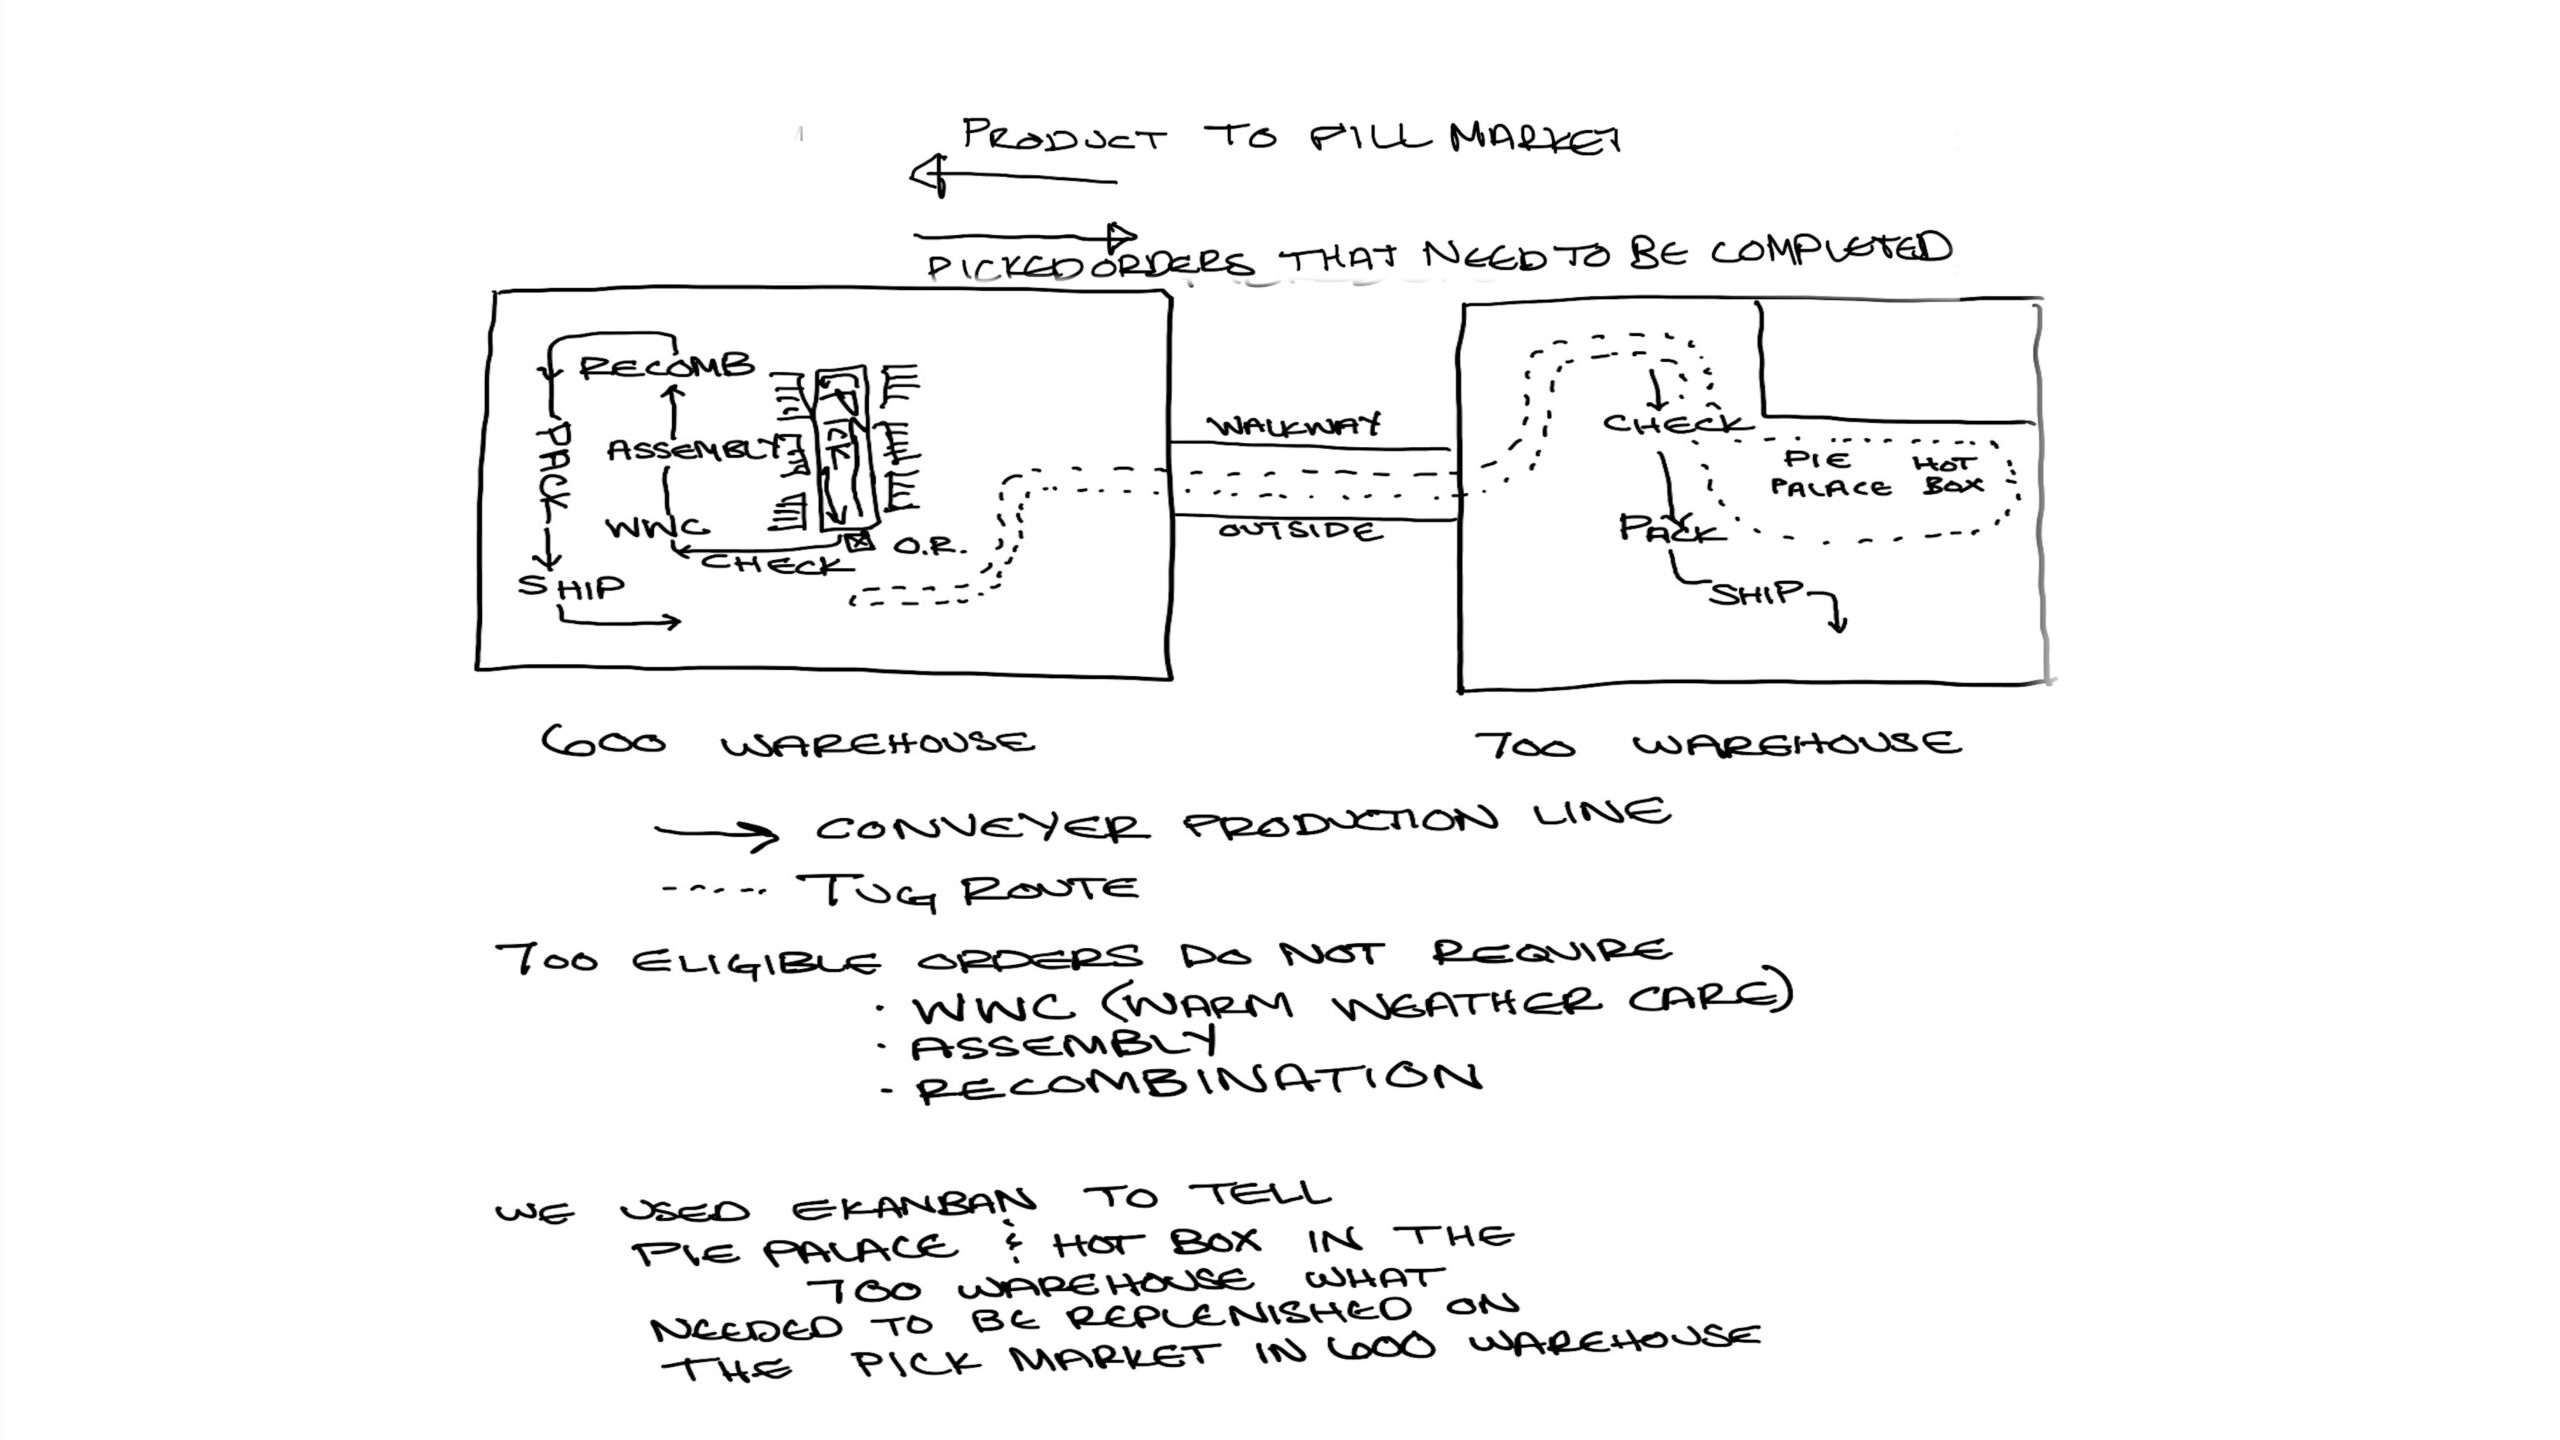 PRODUCT TO FILL MARKET
PICKED ORDERS THAT NEED TO BE COMPLETED
RECOMB
ASSEMBLY
WWC
PACK
SHIP
CHECK
PICK
O.R.
WALKWAY
OUTSIDE
CHECK
PIE PALACE
HOT BOX
PACK
SHIP
600 WAREHOUSE
700 WAREHOUSE
CONVEYER PRODUCTION LINE
TUG ROUTE
700 ELIGIBLE ORDERS DO NOT REQUIRE
· WWC (WARM WEATHER CARE)
· ASSEMBLY
- RECOMBINATION
WE USED EKANBAN TO TELL
PIE PALACE & HOT BOX IN THE
700 WAREHOUSE WHAT
NEEDED TO BE REPLENISHED ON
THE PICK MARKET IN 600 WAREHOUSE